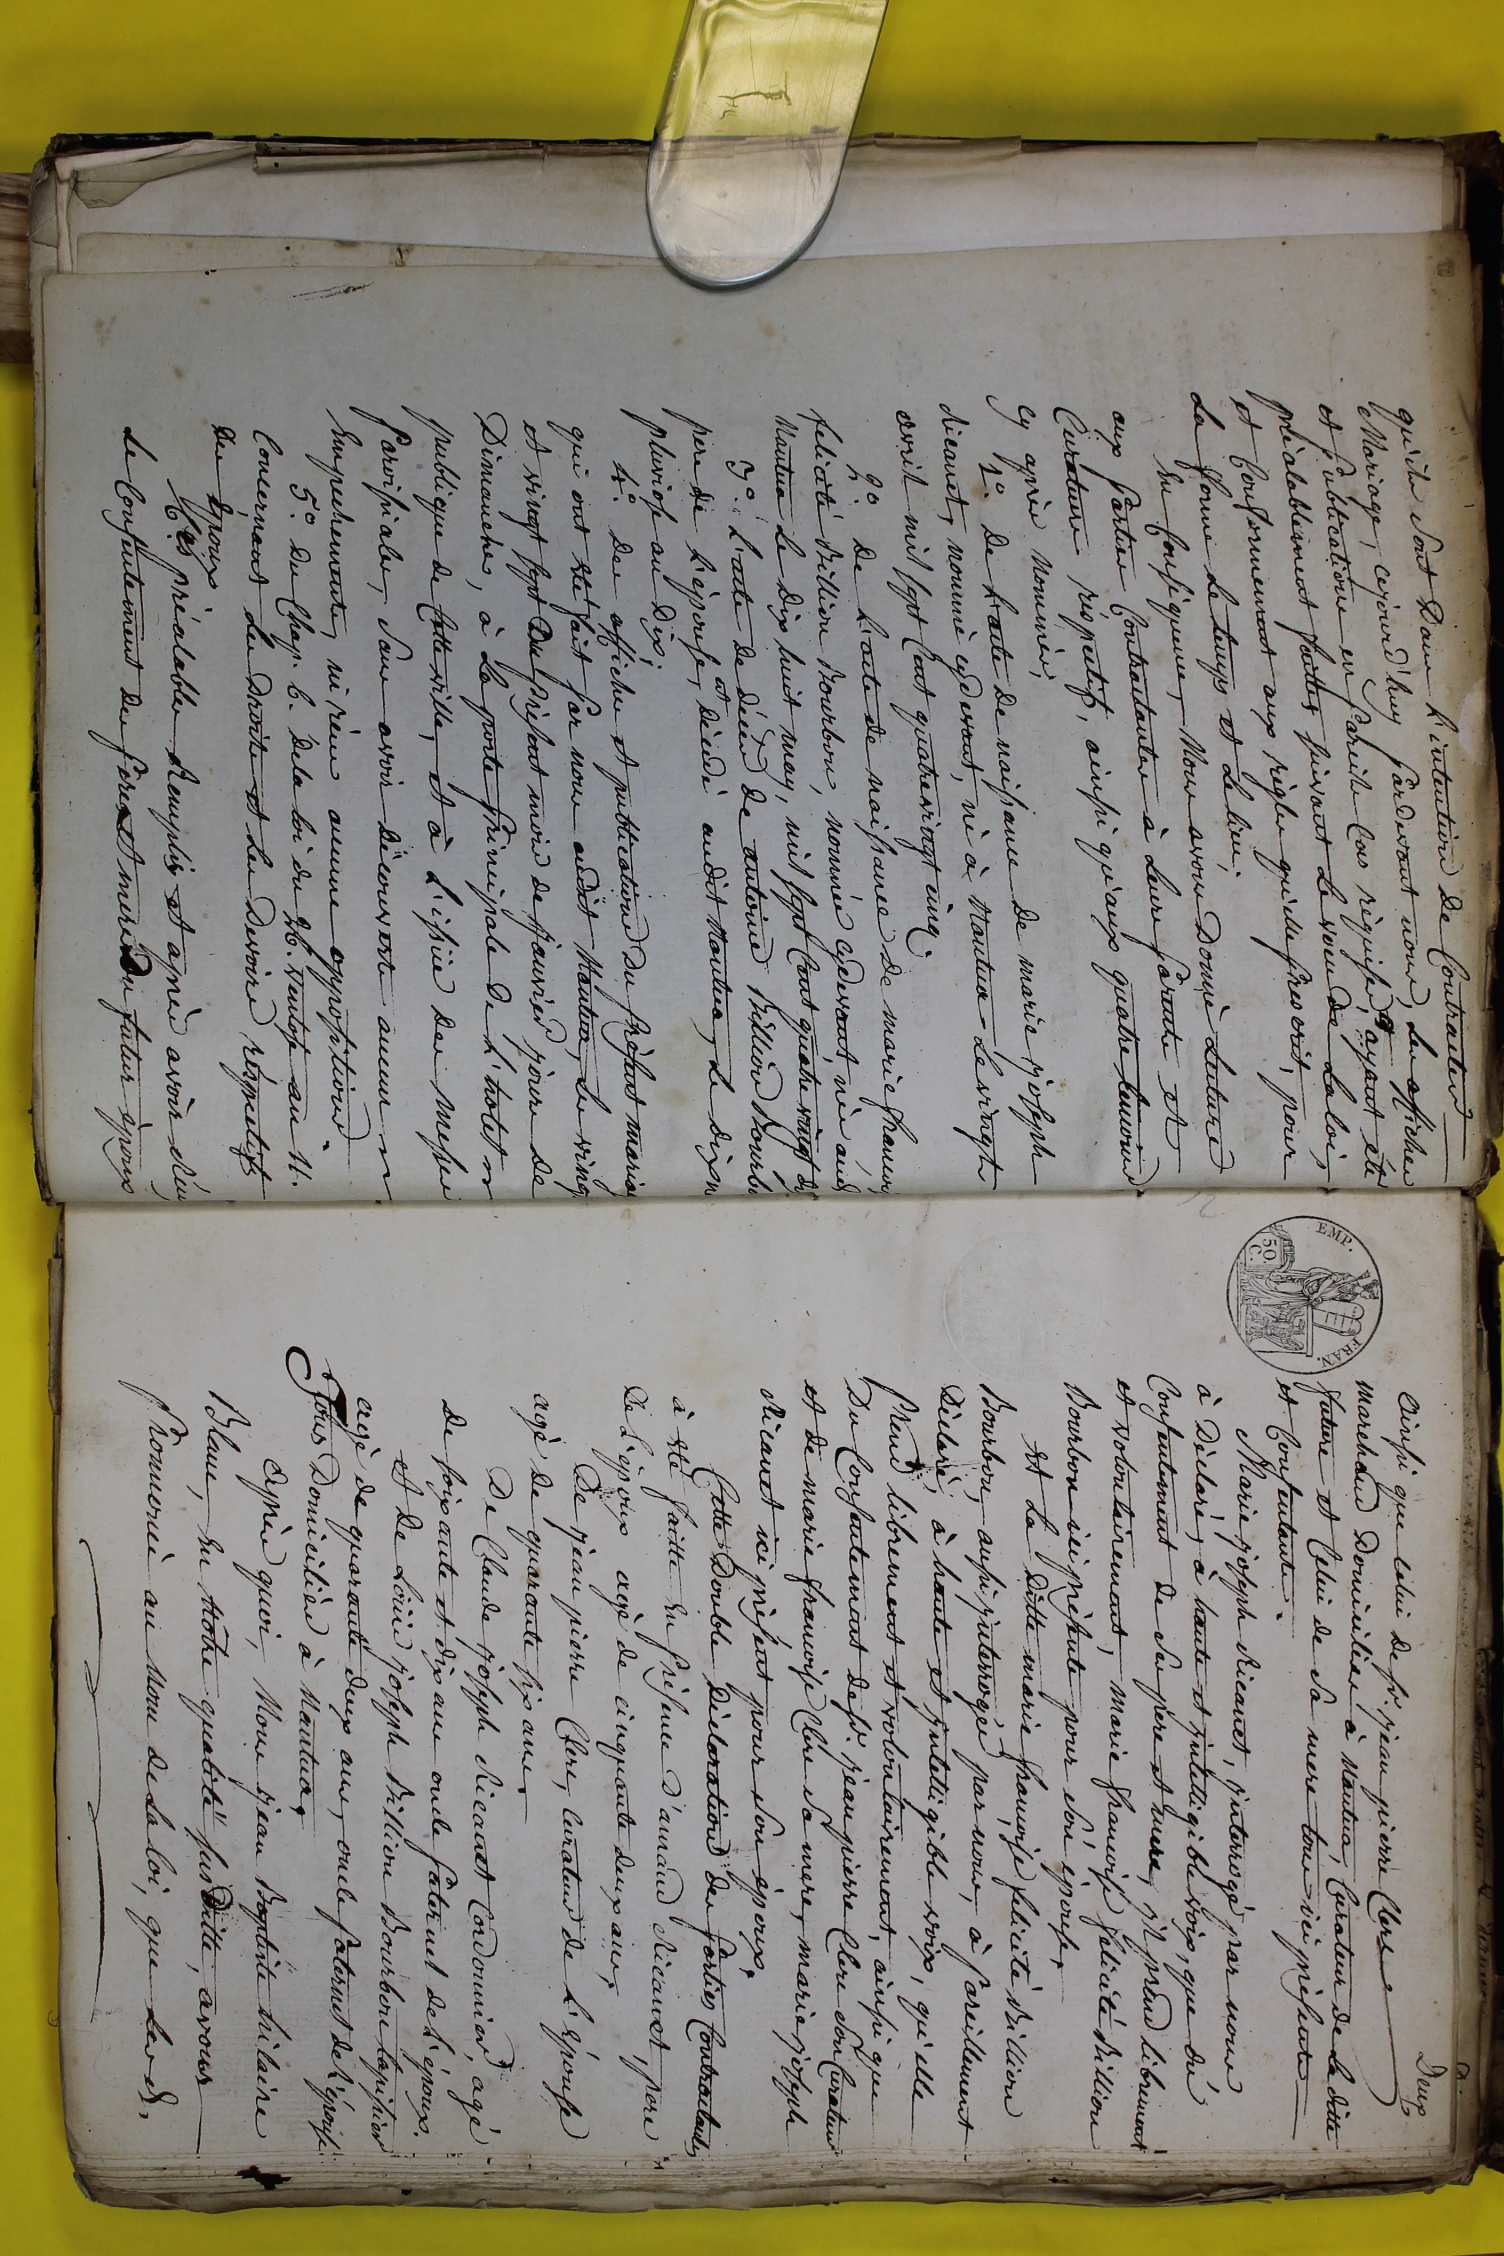 qu'ils sont dans l'intention de Contracter
Mariage, cejourd'huy pardevant nous, les affiches
et publications en pareils Cas réquises, ayant été
préalablement faittes suivant le voeu de la loi,
et Conformement aux règles qu'elle prescrit, pour
la forme le temps et le lieu,
En Conséquence, Nous avons Donné lecture
aux parties Contractantes à leurs parents et
Curateurs réspectifs, ainsi qu'aux quatre temoins
cy après Nommés,
1.° De l'acte de naissance de marie joseph
nommé cydevant, né à Nantua le vingt
avril mil sept Cent quatrevingt cinq
2.° de l'acte de naissance de marie françoi
felicité Billion Bourbon, nommée cydevant, née aud
Nantua le dix huit may, mil sept Cent quatre vingt di
3.° L'acte de décès de antoine Billion Bourb
pere de l'épouse, décédé audit Nantua, le dix
pluviose an dix,
4.° des affiches et publications du présent maria
qui ont été fait par nous audit Nantua, les ving
et vingt sept du présent mois de janvier jours de
Dimanche, à la porte principale de l'hotel
publique de Cette ville, et à l'issüe des messes
paroissiales, sans avoir découverte aucun
Empechements, ni reçu aucune opposition
5.° du Chap. 6. de la loi du 26. Ventose an 11.
Concernant les droits et les devoirs réspectifs
des Epoux
préalables Remplis et après avoir
le Consentement des pere et mere du futur époux
Deux
Ainsi que celui de sr. jean pierre Clerc
marchand Domicilié à Nantua, Curateur de la ditte
future et Celui de sa mere tous ici présents
et Consentants.
Marie joseph, interrogé par nous
à Déclaré, à haute et intelligible voix, que du
Consentement de ses pere et mere, il prend librement
et volontairement, marie françoise felicité Billion
Bourbon ici présente pour son épouse,
Et la ditte marie françoise felicité Billion
Bourbon, aussi interrogée par nous, à pareillement
Déclaré, à haute et intelligible voix, qu'elle
prend librement et volontairement, ainsi que
Du Consentement de sr. jean pierre Clerc son Curateur
et de marie françoise Clerc sa mere, marie joseph
ici présent pour son époux,
Cette double déclaration des parties Contractantes
à été faitte en présence d'amand, pere
de l'époux agé de cinquante deux ans,
De jean pierre Clerc, curateur de l'épouse
agé de quarante six ans,
De Claude joseph Cordonnier, agé
de soixante et dix ans oncle paternel de l'époux.
et de Loüis joseph Billion Bourbon tapissier
agé de quarante deux ans, oncle paternel de l'épouse
Tous Domiciliés à Nantua,
Après quoi, Nous jean Baptiste hilaire
Blanc, en Nôtre qualité susditte, avons
Prononcé au Nom de la loi, que les d.
EMP. FRAN.
50 C.